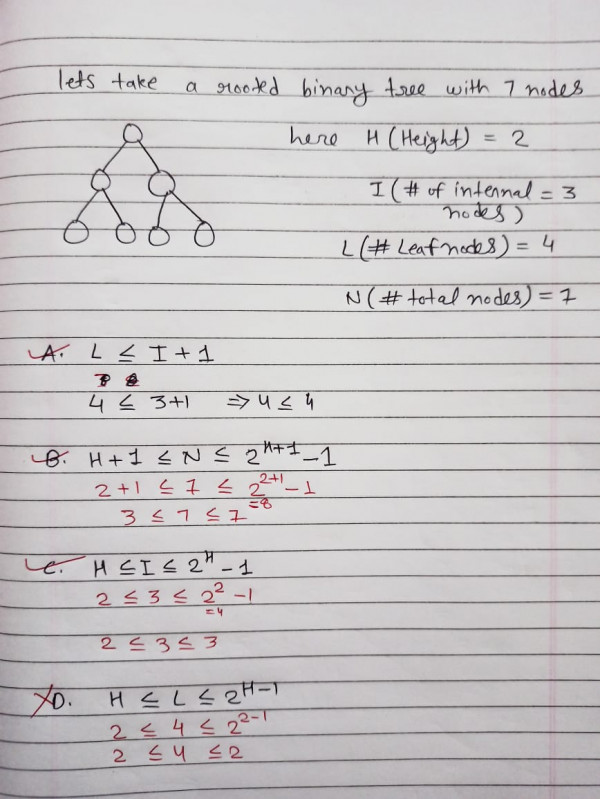 lets take a rooted binary tree with 7 nodes
here H (Height) = 2
I (# of internal = 3
nodes)
L (# Leaf nodes) = 4
N (# total nodes) = 7
A. L ≤ I + 1
4 ≤ 3+1 ⇒ 4 ≤ 4
B. H+1 ≤ N ≤ 2^(H+1) - 1
2+1 ≤ 7 ≤ 2^(2+1) - 1
=8
3 ≤ 7 ≤ 7
C. H ≤ I ≤ 2^H - 1
2 ≤ 3 ≤ 2^2 - 1
=4
2 ≤ 3 ≤ 3
D. H ≤ L ≤ 2^(H-1)
2 ≤ 4 ≤ 2^(2-1)
2 ≤ 4 ≤ 2